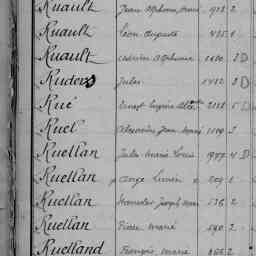 Ruault Jean Alphonse Marie 1918 2
Ruault Léon Auguste 485 1
Ruault Alphonse 1680 3 D
Ruders Jules 1482 3 D
Rué Ernest Eugène 2118 5 D
Ruel Alexandre Jean Marie 1109 2
Ruellan Jules Marie Louis 1987 4 D
Ruellan Ange Lucien 509 1
Ruellan Joseph 536 2
Ruellan Pierre Marie 590 2
Ruelland François Marie 2